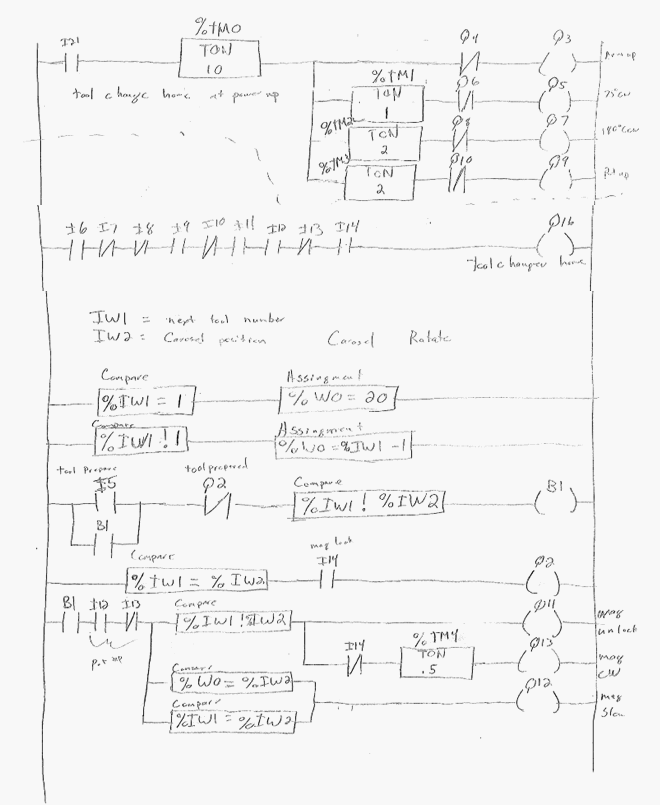 %TM0
I21 TON 10 Q4 Q3 Arm up
tool change home at power up
%TM1 TON 1 Q6 Q5 75°CW
%TM2 TON 2 Q8 Q7 180°CCW
%TM3 TON 2 Q10 Q9 Pot up
I6 I7 I8 I9 I10 I11 I12 I13 I14 Q16
tool changer home
IW1 = next tool number
IW2 = Carosel position Carosel Rotate
Compare Assingment
%IW1 = 1 %W0 = 20
Compare Assingment
%IW1 ! 1 %W0 = %IW1 -1
tool Prepare tool prepared Compare
I5 Q2 %IW1 ! %IW2 B1
B1
Compare mag lock
%IW1 = %IW2 I14 Q2
B1 I12 I13 Compare Q11 mag
%IW1 ! %IW2 unlock
pot up I14 %TM4 TON .5 Q13 mag CW
Compare
%W0 = %IW2 Q12 mag
Compare Slow
%IW1 = %IW2